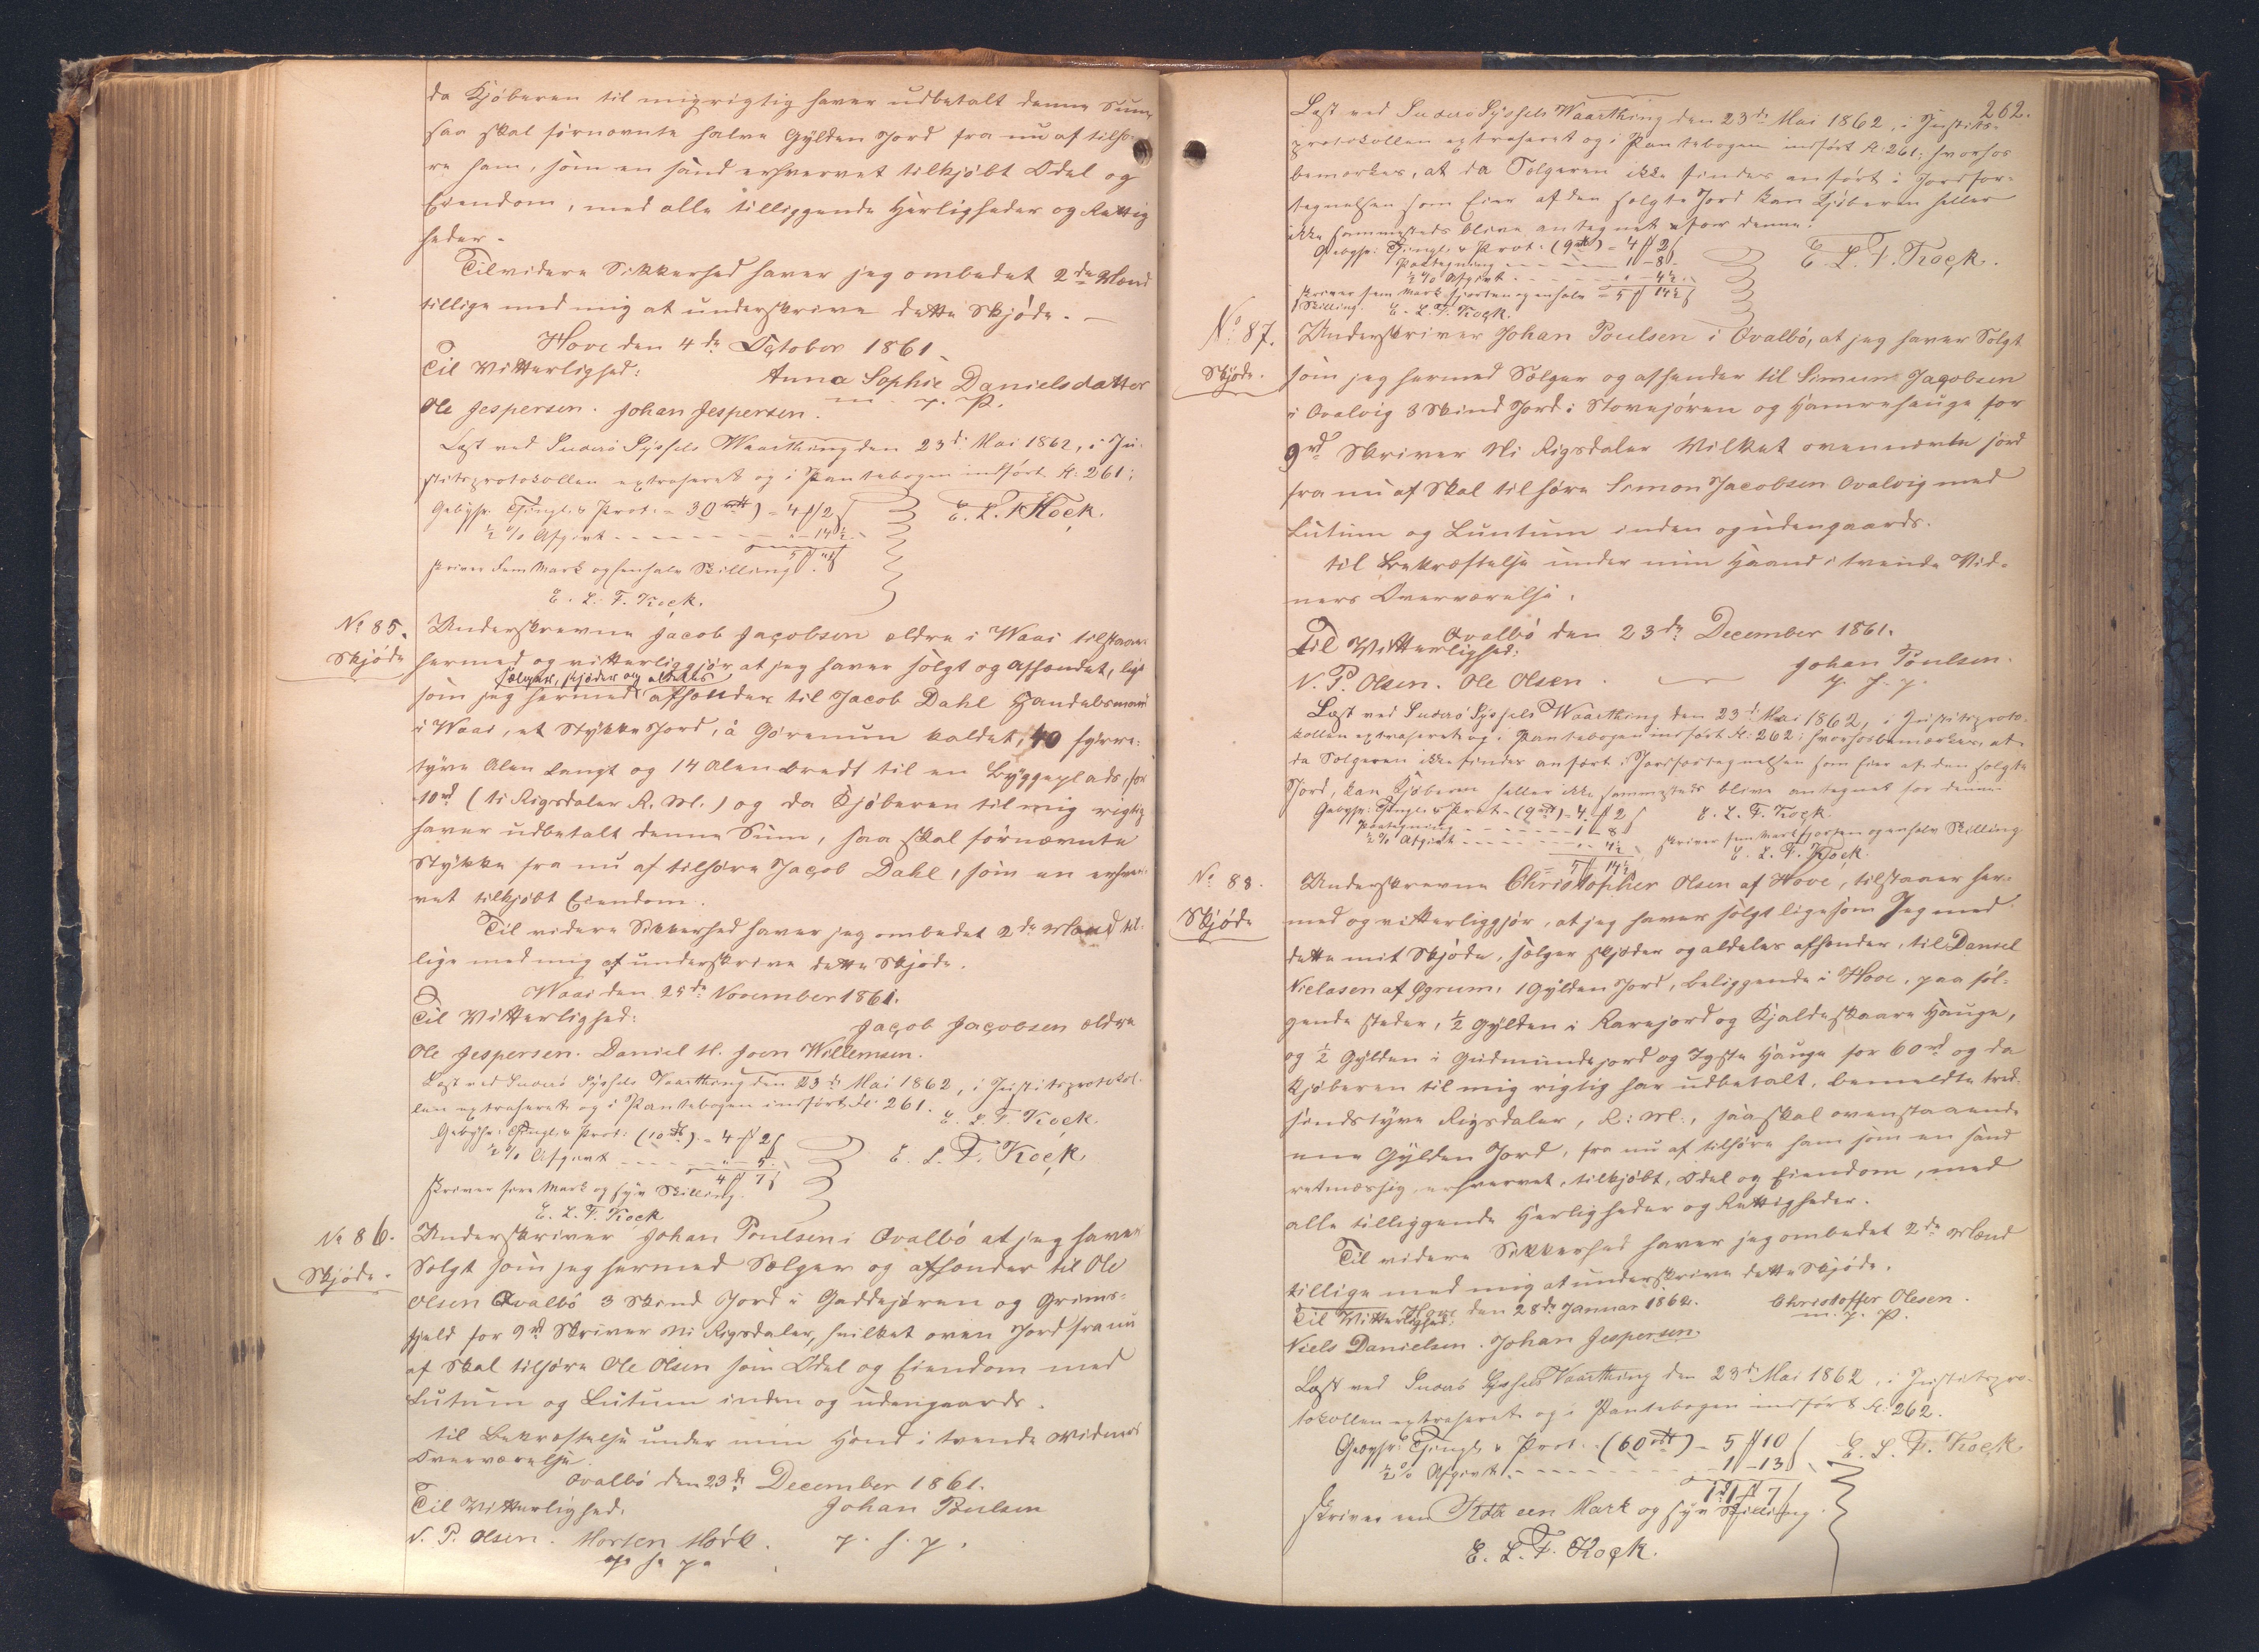 da Kjöberen til mig rigtig haver udbetalt denne Sum,
saa skal fornævnte halve Gylden Jord fra nu af tilhö-
re ham, som en sand erhvervet tilkjöbt Odel og
Eiendom, med alle tilliggende Herligheder og Rettig
heder.
Til videre Sikkerhed haver jeg ombedet 2de Mænd
tillige med mig at underskrive dette Skjöde. —
Hove den 4de October 1861.
Til Vitterlighed:
Anna Sophie Danielsdatter
m. p. P.
Ole Jespersen. Johan Jespersen.
Læst ved Suderö Syssels Vaarthing den 23de Mai 1862, i Ju-
stitsprotokollen extraheret og i Pantebogen indfört fl: 261;
Gebyhr. Thingl. & Prot. = 30 rd) = 4 ℳ 2 ß
½ % Afgivt - - - - - - - „ - 14½ -
5 ℳ ½ ß
skriver fem Mark og en halv Skilling.
E. L. F. Kock.
E. L. F. Kock.
No 85.
Skjöde
Underskrevne Jacob Jacobsen ældre i Waai tilstaaer
hermed og vitterliggjör at jeg haver solgt og afhændet, lige
sælger, skjöder og aldeles
som jeg hermed afhænder til Jacob Dahl Handelsmand
i Waai, et Stykke Jord, á Görenum kaldet, 40 fyrre-
tyve Alen langt og 14 Alen bredt til en Byggeplads, for
10rd (ti Rigsdaler R. M.) og da Kjöberen til mig rigtig
haver udbetalt denne Sum, saa skal fornævnte
Stykke fra nu af tilhöre Jacob Dahl, som en erhver-
vet tilkjöbt Eiendom.
Til videre Sikkerhed haver jeg ombedet 2de Mænd til-
lige med mig at underskrive dette Skjöde.
Waai den 25de November 1861.
Til Vitterlighed:
Jacob Jacobsen ældre
Ole Jespersen. Daniel M. Joen Willemsen.
Læst ved Suderö Syssels Vaarthing den 23de Mai 1862, i Justitsprotokol-
len extraheret og i Pantebogen indfört fl: 261.
E. L. F. Kock.
Gebyhr: Thingl. & Prot: (10 rd) = 4 ℳ 2 ß
½ % Afgivt - - - - - „ - 5 -
4 ℳ 7 ß
E. L. F. Kock.
skriver fire Mark og syv Skilling.
E. L. F. Kock
No 86.
Skjöde.
Underskriver Johan Poulsen i Qvalbö at jeg haver
Solgt som jeg hermed Sælger og afhænder til Ole
Olsen Qvalbö 3 Skind Jord i Gaddejören og Grims-
fjeld for 9rd Skriver Ni Rigsdaler, hvilket oven Jord fra nu
af Skal tilhöre Ole Olsen som Odel og Eiendom med
Lutum og Lutum inden og udengaards.
til Bekræftelse under min Hand i tvende Widners
Overværelse.
Qvalbö den 23de December 1861.
Til Vitterlighed.
Johan Poulsen
N. P. Olsen. Morten Mörk.
p. h. p.
p. h. p.
262.
Læst ved Suderö Syssels Vaarthing den 23de Mai 1862, i Justits-
protokollen extraheret og i Pantebogen indfört fl: 261; hvorhos
bemærkes, at da Sælgeren ikke findes anfört i Jordfor-
tegnelsen som Eier af den solgte Jord kan Kjöberen heller
ikke sammesteds blive antegnet for denne.
Gebyhr: Thingl. & Prot. (9 rd) = 4 ℳ 2 ß
Paategning - - - - - 1 - 8 -
½ % Afgivt - - - - - „ - 4½ -
skriver fem Mark fjorten og en halv = 5 ℳ 14½ ß
Skilling. E. L. F. Kock.
E. L. F. Kock.
No 87.
Skjöde.
Underskriver Johan Poulsen i Qvalbö, at jeg haver Solgt
som jeg hermed Sælger og afhender til Simun Jacobsen
i Qvalvig 3 Skind Jord i Stovejören og Hamrehauge for
9rd Skriver Ni Rigsdaler Vilket ovennævnte jord
fra nu af Skal tilhöre Simon Jacobsen Qvalvig med
Lutum og Luntum inden og udengaards.
til Bekræftelse under min Haand i tvende Vid-
ners Overværelse.
Qvalbö den 23de December 1861.
Til Vitterlighed:
Johan Poulsen.
p. h. p.
N. P. Olsen. Ole Olsen.
Læst ved Suderö Syssels Vaarthing den 23de Mai 1862, i Justitsproto-
kollen extraheret og i Pantebogen indfört fl: 262; hvorhos bemærkes, at
da Sælgeren ikke findes anfört i Jordfortegnelsen som Eier af den solgte
Jord, kan Kjöberen heller ikke sammesteds blive antegnet for denne.
Gebyhr: Thingl. & Prot. (9 rd) = 4 ℳ 2 ß
Paategning - - - - - 1 - 8 -
½ % Afgivt - - - - - „ - 4½
= 5 ℳ 14½ ß
E. L. F. Kock.
skriver fem Mark fjorten og en halv Skilling.
E. L. F. Kock.
No 88.
Skjöde
Underskrevne Christopher Olsen af Hove, tilstaaer her-
med og vitterliggjör, at jeg haver solgt ligesom Jeg med
dette mit Skjöde, sælger skjöder og aldeles afhender, til Daniel
Nielasen af Ögrum, 1 Gylden Jord, beliggende i Hove, paa föl-
gende steder, ½ Gylden i Rarejord og Kjaldeskaare Hauge,
og ½ Gylden i Gudmundejord og Igste Hauge for 60rd og da
Kjöberen til mig rigtig har udbetalt, bemeldte tred-
sindstyve Rigsdaler, R: M:, saa skal ovenstaaende
ene Gylden Jord, fra nu af tilhöre ham som en sand
retmæssig, erhvervet, tilkjöbt, Odel og Eiendom, med
alle tilliggende Herligheder og Rettigheder.
Til videre Sikkerhed haver jeg ombedet 2de Mænd
tillige med mig at underskrive dette Skjöde.
Hove den 28de Januar 1862.
Til Vitterlighed.
Christoffer Olesen.
m. p. P.
Niels Danielsen. Johan Jespersen.
Læst ved Suderö Syssels Vaarthing den 23de Mai 1862, i Justitspro-
tokollen extraheret og i Pantebogen indfört fl: 262.
Gebyhr: Thingl. & Prot. (60 rd) = 5 ℳ 10 ß
½ % Afgivt - - - - - 1 - 13 ß
1 rd 1 ℳ 7 ß
E. L. F. Kock.
skriver een Rdlr een Mark og syv Skilling.
E. L. F. Kock.